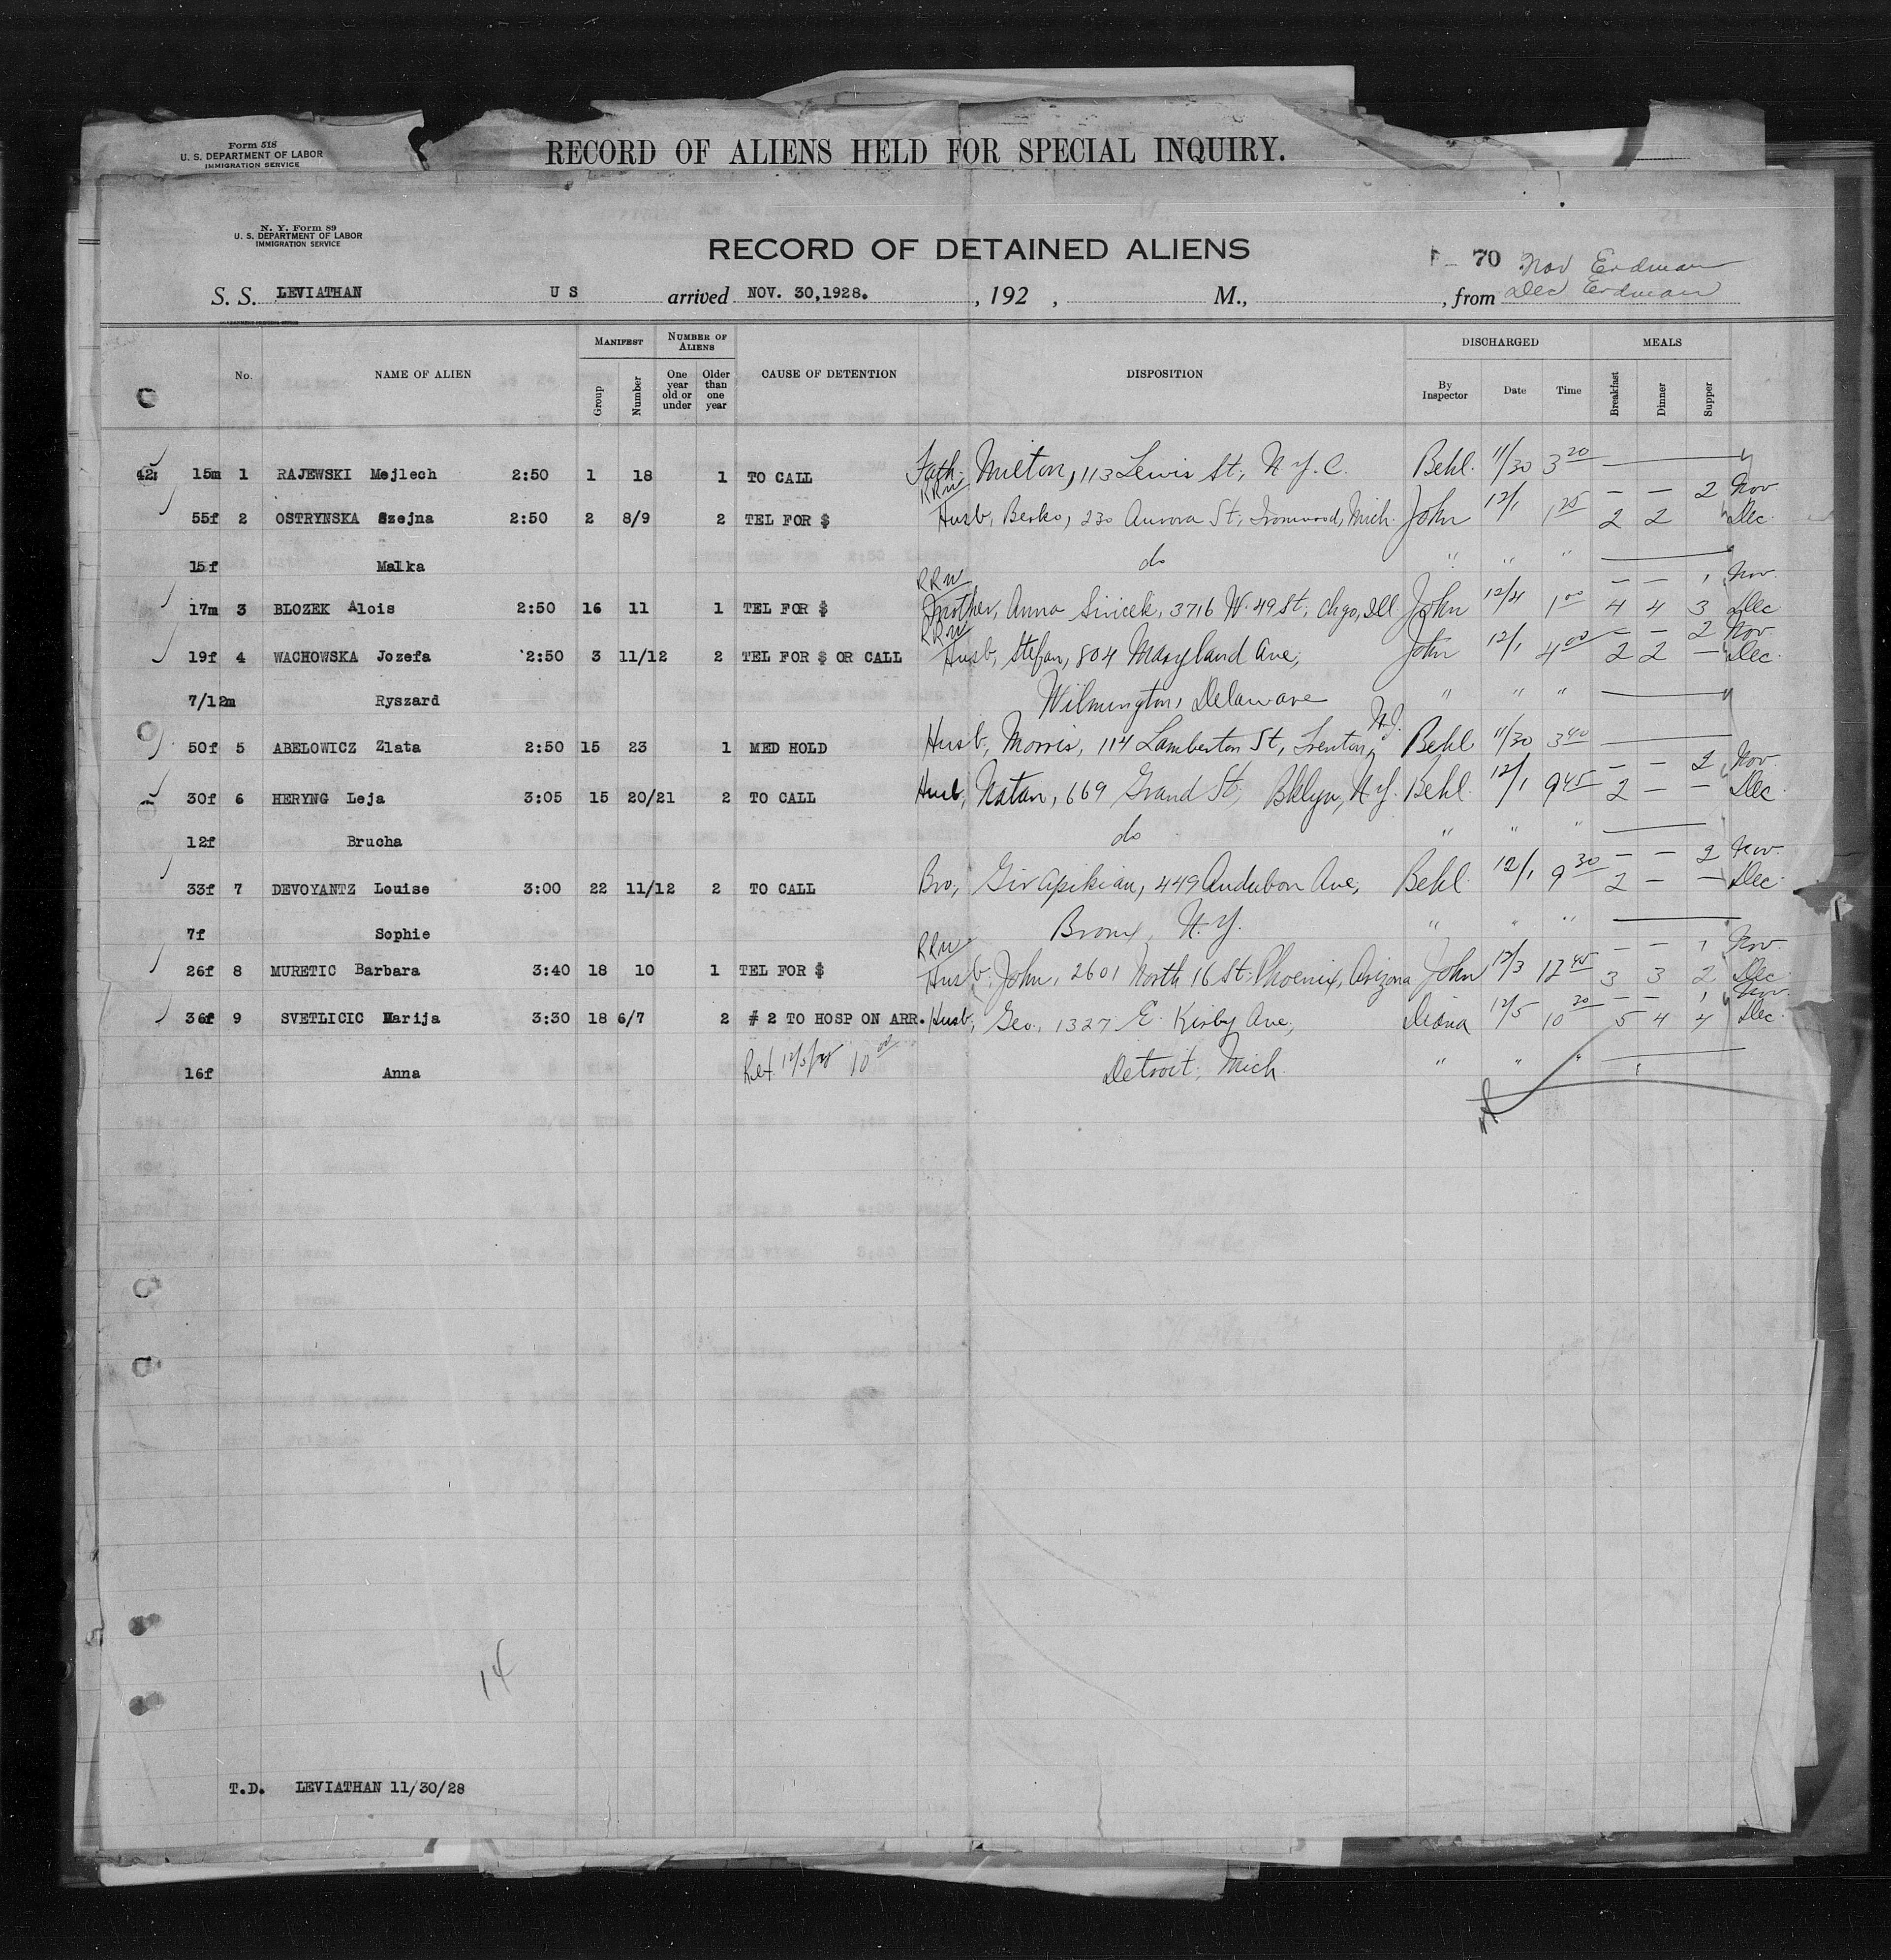 Form 518
U. S. DEPARTMENT OF LABOR
IMMIGRATION SERVICE
RECORD OF ALIENS HELD FOR SPECIAL INQUIRY.
N. Y. Form 89
U. S. DEPARTMENT OF LABOR
IMMIGRATION SERVICE
RECORD OF DETAINED ALIENS
70 Nov Erdman
S. S. LEVIATHAN U S arrived NOV. 30,1928. , 192 , M., , from Dec Erdman
No. NAME OF ALIEN MANIFEST Group Number NUMBER OF ALIENS One year old or under Older than one year CAUSE OF DETENTION DISPOSITION DISCHARGED By Inspector Date Time MEALS Breakfast Dinner Supper
15m 1 RAJEWSKI Mejlech 2:50 1 18 1 TO CALL Fath. Milton, 113 Lewis St, N.Y.C. Behl. 11/30 3 20 —
RRW — — 2 Nov
55f 2 OSTRYNSKA Szejna 2:50 2 8/9 2 TEL FOR $ Husb, Berko, 230 Aurora St, Ironwood, Mich. John 12/1 1 25 2 2 Dec.
15f Malka do " " " —
RRW — — 1 Nov.
17m 3 BLOZEK Alois 2:50 16 11 1 TEL FOR $ Mother, Anna Sivicek, 3716 W. 49 St, Chgo, Ill John 12/4 1 00 4 4 3 Dec
RRW — — 2 Nov.
19f 4 WACHOWSKA Jozefa 2:50 3 11/12 2 TEL FOR $ OR CALL Husb, Stefan, 804 Maryland Ave, John 12/1 4 00 2 2 — Dec.
7/12m Ryszard Wilmington, Delaware " " " —
50f 5 ABELOWICZ Zlata 2:50 15 23 1 MED HOLD Husb, Morris, 114 Lamberton St, Trenton, N.J. Behl 11/30 3 40 —
— — 2 Nov.
30f 6 HERYNG Leja 3:05 15 20/21 2 TO CALL Husb, Natan, 669 Grand St, Bklyn, N.Y. Behl. 12/1 9 45 2 — — Dec.
12f Brucha do " " " —
— — 2 Nov.
33f 7 DEVOYANTZ Louise 3:00 22 11/12 2 TO CALL Bro, Apikian, 449 Audubon Ave, Behl. 12/1 9 30 2 — — Dec.
7f Sophie Bronx, N.Y. " " " —
RRW — — 1 Nov.
26f 8 MURETIC Barbara 3:40 18 10 1 TEL FOR $ Husb. John, 2601 North 16 St. Phoenix, Arizona John 12/3 12 45 3 3 2 Dec
— — 1 Nov.
36f 9 SVETLICIC Marija 3:30 18 6/7 2 # 2 TO HOSP ON ARR. Husb, Geo, 1327 E. Kirby Ave, Diana 12/5 10 20 5 4 4 Dec.
16f Anna Ret. 12/5/28 10 00 Detroit, Mich. " " " —
14
T.D. LEVIATHAN 11/30/28